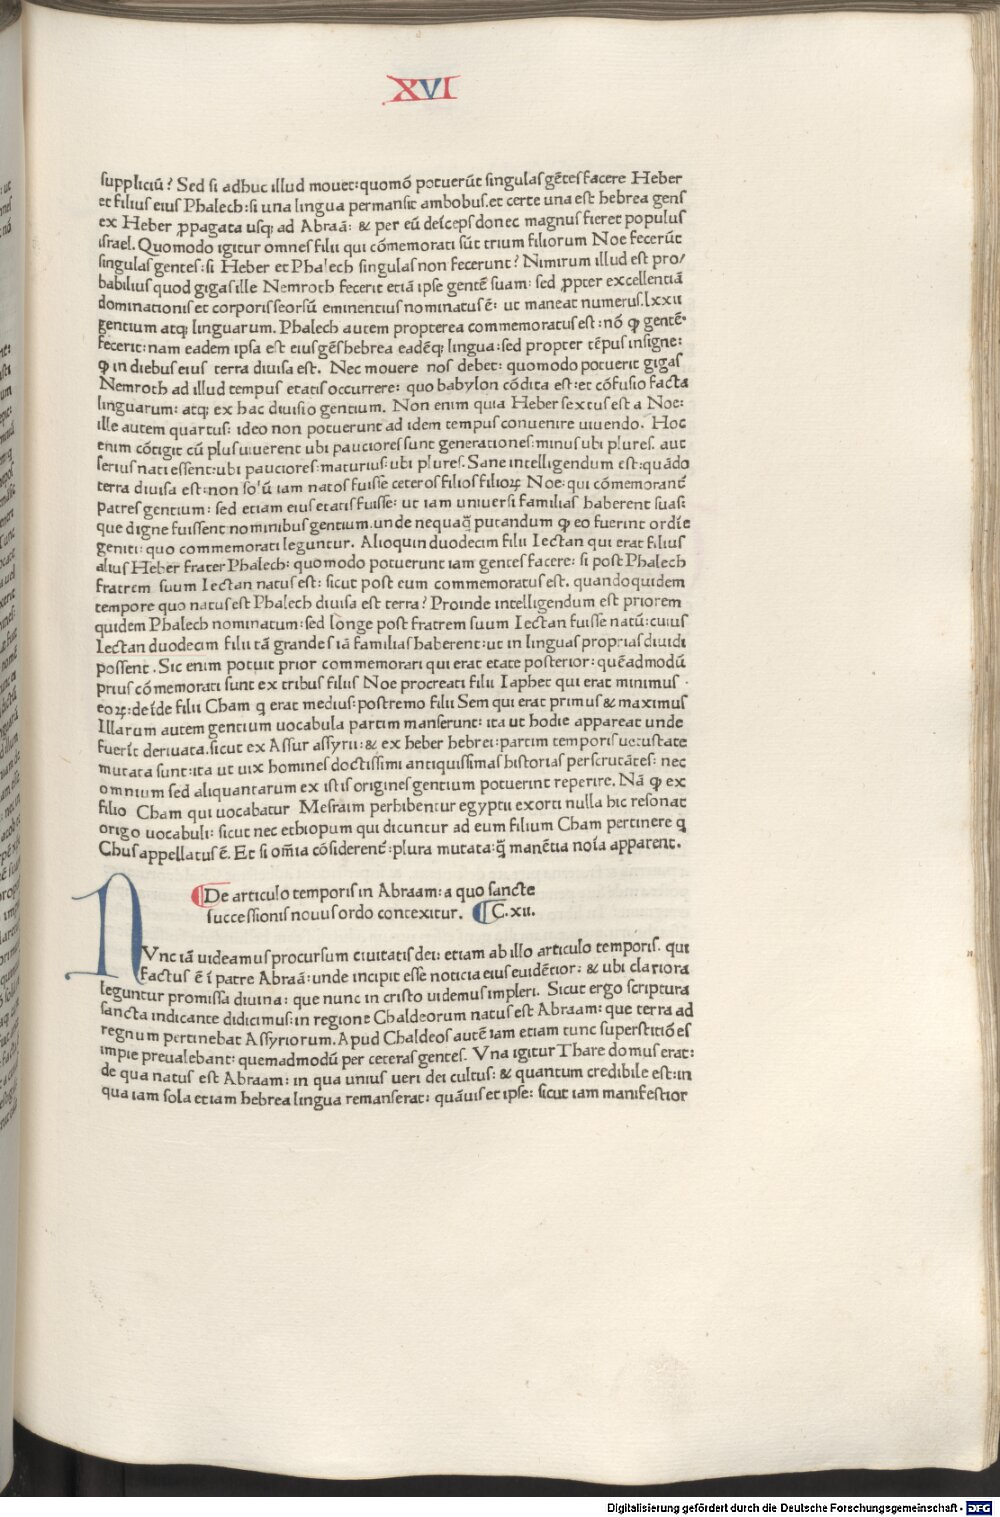 XVI
suppliciū? Sed si adhuc illud mouet: quomō potuerūt singulas gētes facere Heber
et filius eius Phalech: si una lingua permansit ambobus. et certe una est hebrea gens
ex Heber ꝓpagata usqꝫ ad Abraā: & per eū deīceps donec magnus fieret populus
israel. Quomodo igitur omnes filii qui cōmemorati sūt trium filiorum Noe fecerūt
singulas gentes: si Heber et Phalech singulas non fecerunt? Nimirum illud est pro/
babilius quod gigas ille Nemroth fecerit etiā ipse gentē suam: sed ꝓpter excellentiā
dominationis et corporis seorsū eminentius nominatus ē: ut maneat numerus. lxxii
gentium atqꝫ linguarum. Phalech autem propterea commemoratus est: nō ꝙ gentē
fecerit: nam eadem ipsa est eius gēs hebrea eadēqꝫ lingua: sed propter tēpus insigne:
ꝙ in diebus eius terra diuisa est. Nec mouere nos debet: quomodo potuerit gigas
Nemroth ad illud tempus etatis occurrere: quo babylon cōdita est: et cōfusio facta
linguarum: atqꝫ ex hac diuisio gentium. Non enim quia Heber sextus est a Noe:
ille autem quartus: ideo non potuerunt ad idem tempus conuenire uiuendo. Hoc
enim cōtigit cū plus uiuerent ubi pauciores sunt generationes: minus ubi plures. aut
serius nati essent: ubi pauciores: maturius: ubi plures. Sane intelligendum est: quādo
terra diuisa est: non so'ū iam natos fuisse ceteros filios filioꝝ Noe: qui cōmemorant̄
patres gentium: sed etiam eius etatis fuisse: ut iam uniuersi familias haberent suas:
que digne fuissent nominibus gentium. unde nequaq̄ putandum ꝙ eo fuerint ordīe
geniti: quo commemorati leguntur. Alioquin duodecim filii Iectan qui erat filius
alius Heber frater Phalech: quomodo potuerunt iam gentes facere: si post Phalech
fratrem suum Iectan natus est: sicut post eum commemoratus est. quandoquidem
tempore quo natus est Phalech diuisa est terra? Proinde intelligendum est priorem
quidem Phalech nominatum: sed lōnge post fratrem suum Iectan fuisse natū: cuius
Iectan duodecim filii tā grandes iā familias haberent: ut in linguas proprias diuidi
possent. Sic enim potuit prior commemorari qui erat etate posterior: quēadmodū
prius cōmemorati sunt ex tribus filiis Noe procreati filii Iaphet qui erat minimus
eoꝝ: deīde filii Cham q erat medius: postremo filii Sem qui erat primus & maximus
Illarum autem gentium uocabula partim manserunt: ita ut hodie appareat unde
fuerīt deriuata. sicut ex Assur assyrii: & ex heber hebrei: partim temporis uetustate
mutata sunt: ita ut uix homines doctissimi antiquissimas historias perscrutātes: nec
omnium sed aliquantarum ex istis origines gentium potuerint reperire. Nā ꝙ ex
filio Cham qui uocabatur Mesraim perhibentur egyptii exorti nulla hic resonat
origo uocabuli: sicut nec ethiopum qui dicuntur ad eum filium Cham pertinere q
Chus appellatus ē. Et si om̄ia cōsiderent̄: plura mutata: q̄ manētia noīa apparent.
De articulo temporis in Abraam: a quo sancte
successionis nouus ordo contexitur. C. xii.
NVnc iā uideamus procursum ciuitatis dei: etiam ab illo articulo temporis. qui
factus ē ī patre Abraā: unde incipit esse noticia eius euidētior: & ubi clariora
leguntur promissa diuina: que nunc in cristo uidemus impleri. Sicut ergo scriptura
sancta indicante didicimus: in regione Chaldeorum natus est Abraam: que terra ad
regnum pertinebat Assyriorum. Apud Chaldeos autē iam etiam tunc superstitiōes
impie preualebant: quemadmodū per ceteras gentes. Vna igitur Thare domus erat:
de qua natus est Abraam: in qua unius ueri dei cultus: & quantum credibile est: in
qua iam sola etiam hebrea lingua remanserat: quāuis et ipse: sicut iam manifestior
Digitalisierung gefördert durch die Deutsche Forschungsgemeinschaft - DFG